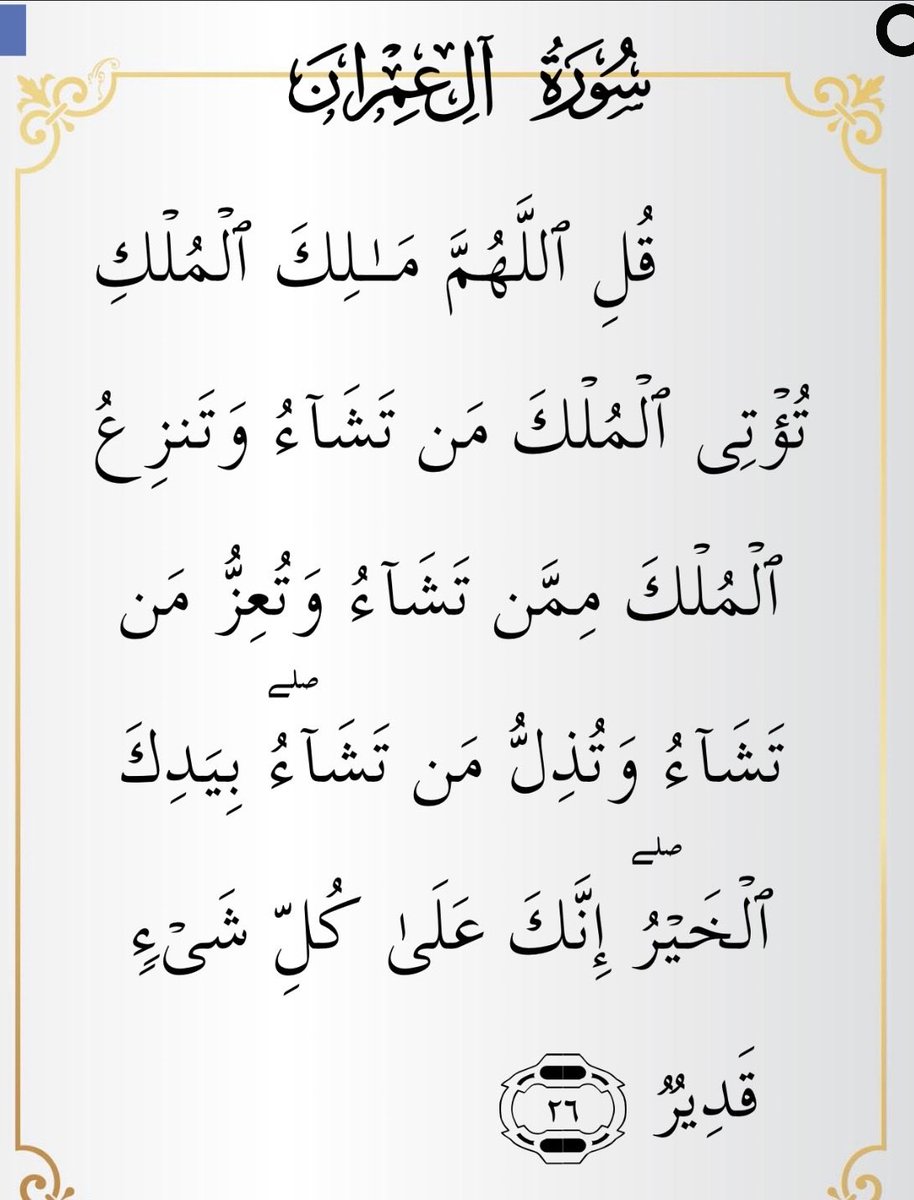 سُورَةُ آلِ عِمْرَانَ
قُلِ ٱللَّهُمَّ مَـٰلِكَ ٱلْمُلْكِ
تُؤْتِى ٱلْمُلْكَ مَن تَشَآءُ وَتَنزِعُ
ٱلْمُلْكَ مِمَّن تَشَآءُ وَتُعِزُّ مَن
تَشَآءُ وَتُذِلُّ مَن تَشَآءُ ۖ بِيَدِكَ
ٱلْخَيْرُ ۖ إِنَّكَ عَلَىٰ كُلِّ شَىْءٍ
قَدِيرٌ ٢٦